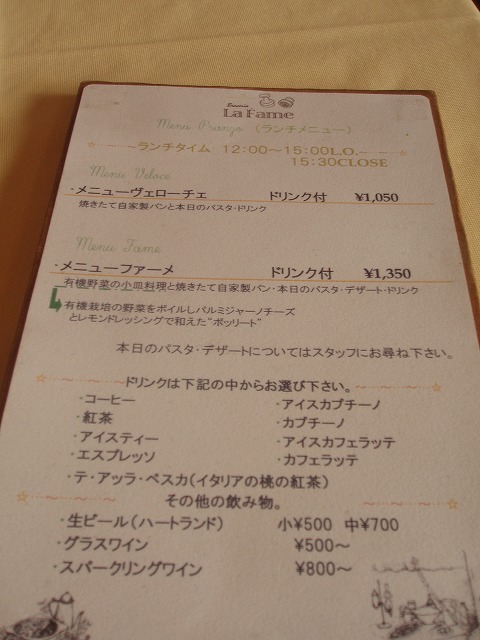 La Fame
Menu Pranzo (ランチメニュー)
ランチタイム 12:00～15:00L.O.
15:30CLOSE
Menu Veloce
・メニューヴェローチェ ドリンク付 ¥1,050
焼きたて自家製パンと本日のパスタ・ドリンク
Menu Fame
・メニューファーメ ドリンク付 ¥1,350
有機野菜の小皿料理と焼きたて自家製パン・本日のパスタ・デザート・ドリンク
有機栽培の野菜をボイルしパルミジャーノチーズ
とレモンドレッシングで和えた"ボッリート"
本日のパスタ・デザートについてはスタッフにお尋ね下さい。
ドリンクは下記の中からお選び下さい。
・コーヒー ・アイスカプチーノ
・紅茶 ・カプチーノ
・アイスティー ・アイスカフェラッテ
・エスプレッソ ・カフェラッテ
・テ・アッラ・ペスカ(イタリアの桃の紅茶)
その他の飲み物。
・生ビール(ハートランド) 小¥500 中¥700
・グラスワイン ¥500～
・スパークリングワイン ¥800～